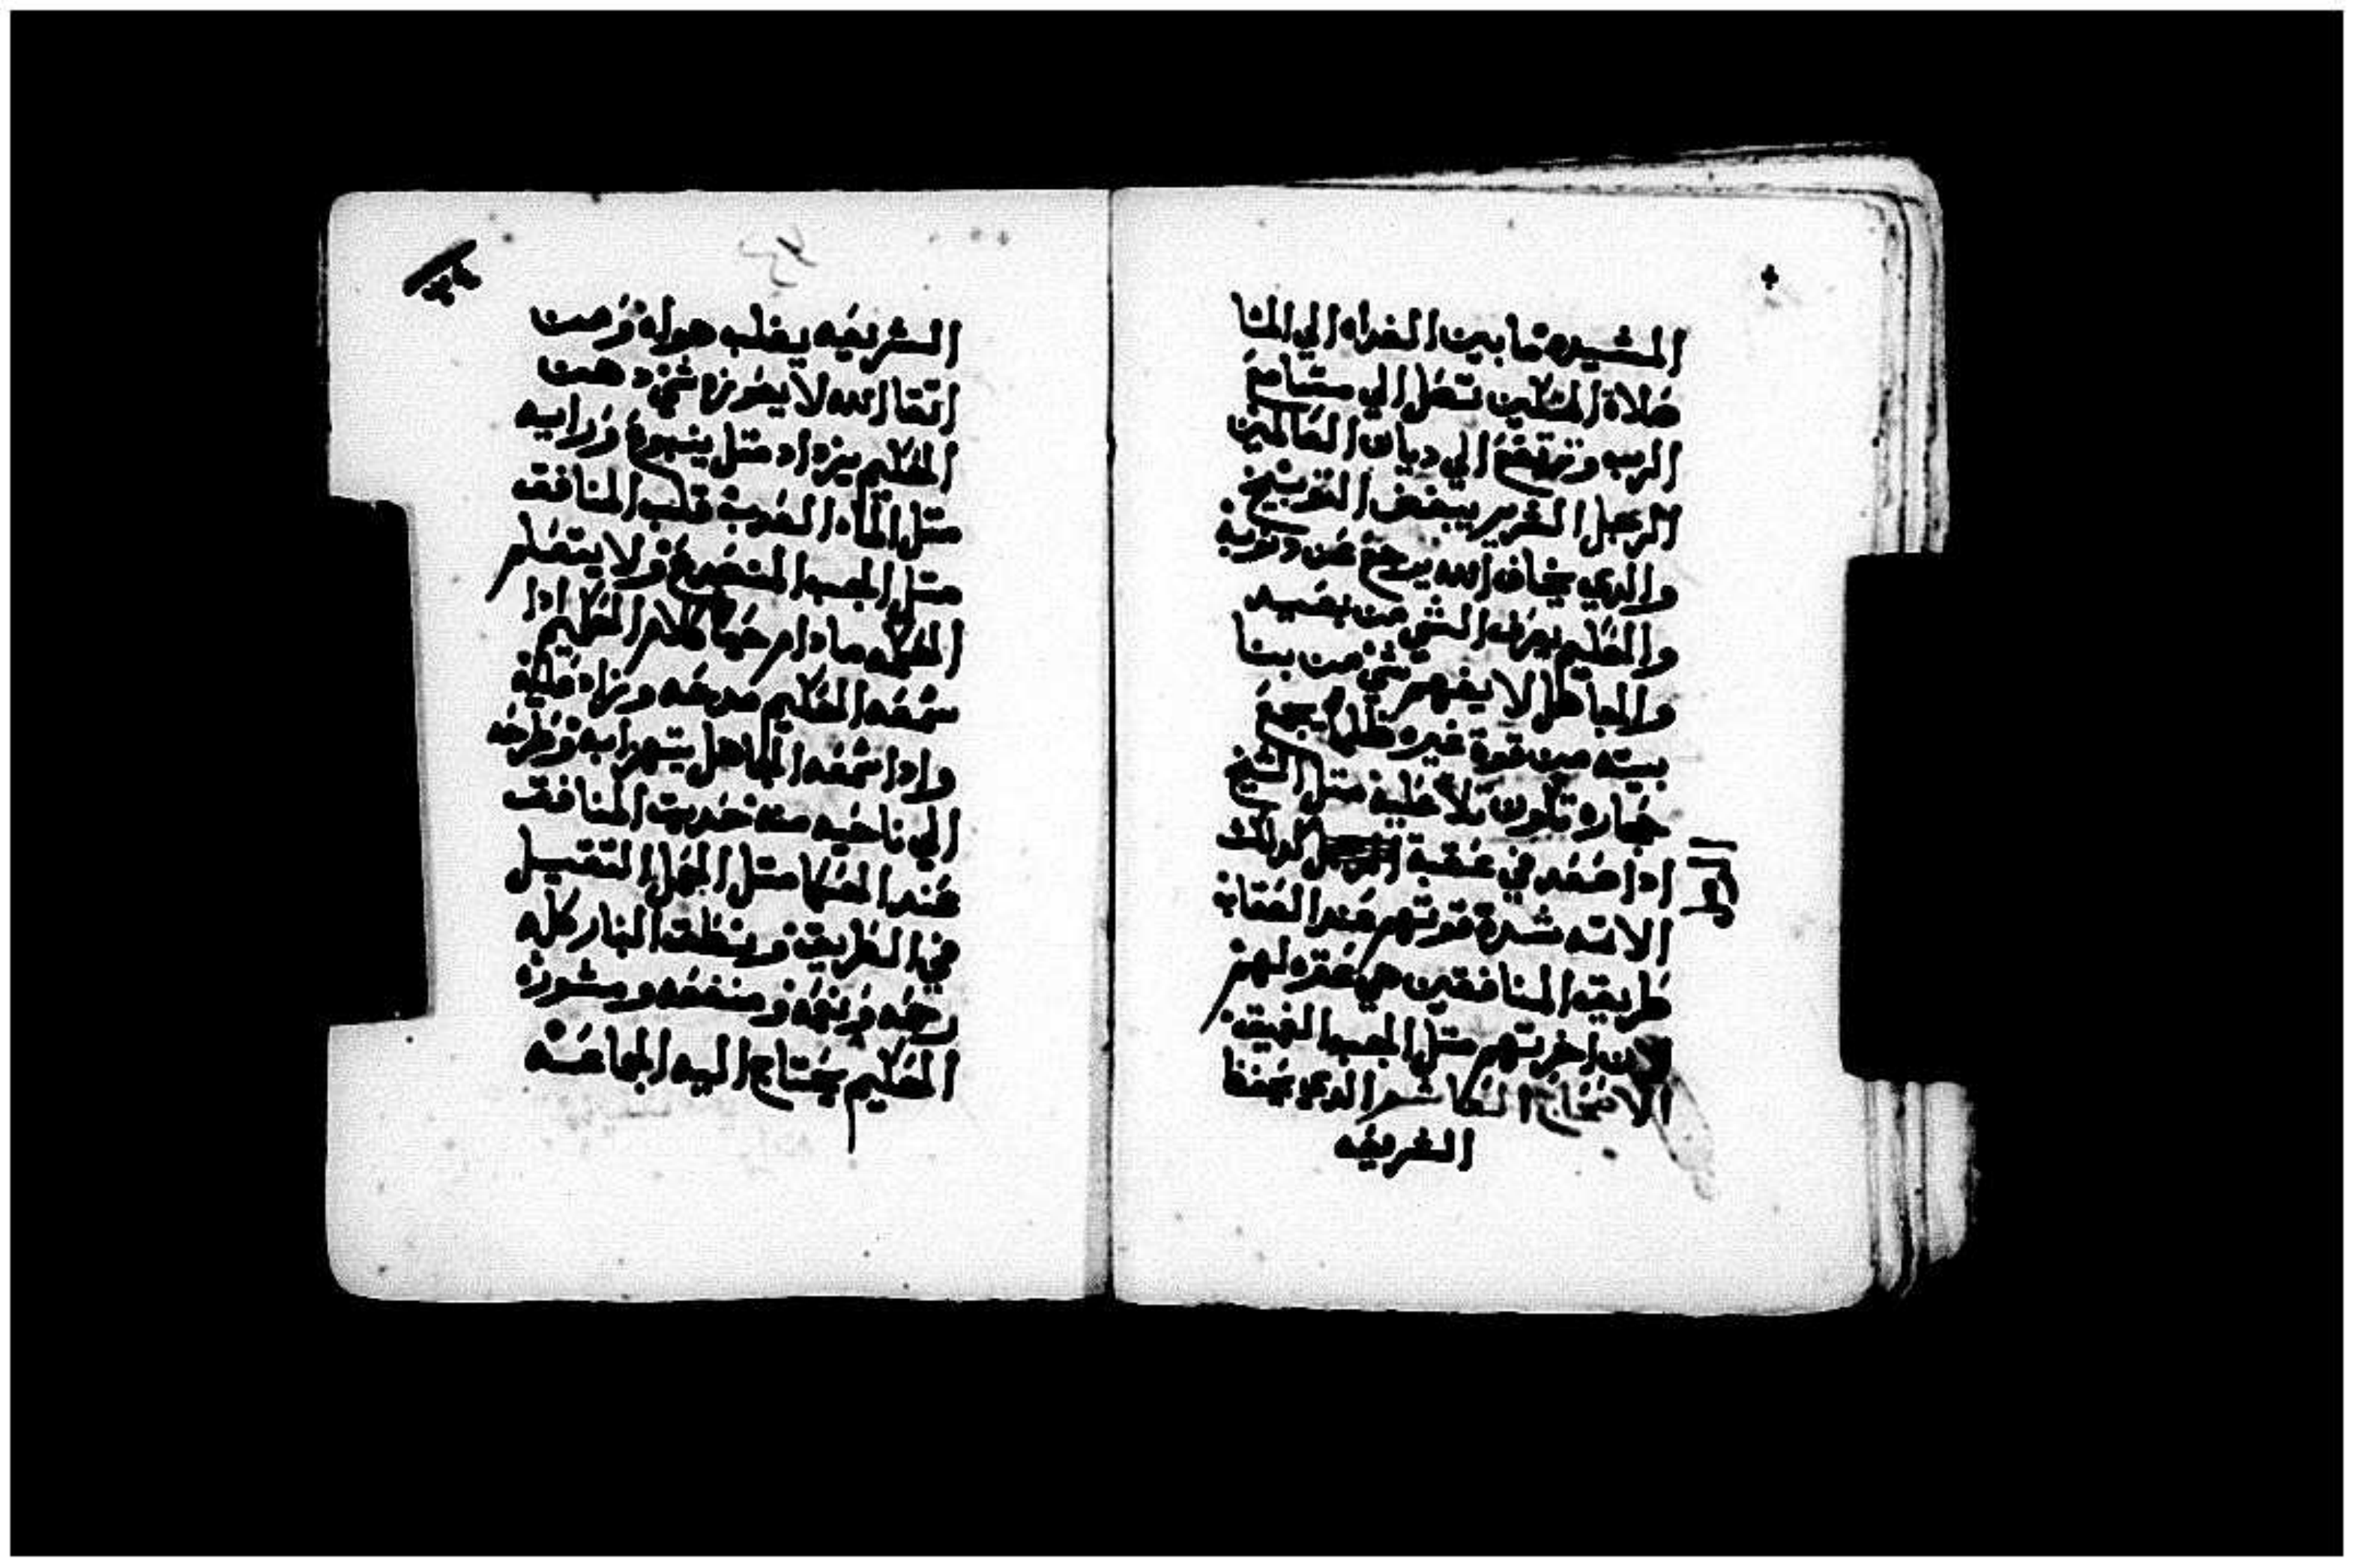 المشيده ما بين الغداه الي المسا
صلاة المسكين تصل الي مسامع
الرب وترتفع الي ديان العالمين
الرجل الشرير يبغض التوبيخ
والدي يخاف الله يرجع عن دنوبه
والحكيم يعرف الشي من بعيد
والجاهل لا يفهم شي من بنا
بيته من قوة غيره ظلما يجمع
حجاره تكون تلا عليه مثل الشيخ
ادا صعد في عقبة كدلك
الاته شدة قوتهم عند العقاب
طريقه المنافقين هي عتره لهم
لان اخرتهم متل الجب العميق
الاصحاح العاشر الدي يحفظ
الشريعه
الرمل
الشريعه يغلب هواه ومن
اتقا الله لا يعوزه شي دهن
الحكيم يزداد متل ينبوع ورايه
متل الماء العدبة قلب المنافق
متل الجب المتصدع ولا يتعلم
الحكمه ما دام حيا كلام الحكيم ادا
سمعه الحكيم مدحه وزاد عليه
وادا سمعه الجاهل يتهزا به وطرحه
الي ناحيه منه حديت المنافق
عند الحكما متل الحمل التقيل
في الطريق وينطق النار كله
رحمه ونعمه ومنفعه ومشورة
الحكيم يحتاج اليه الجماعة